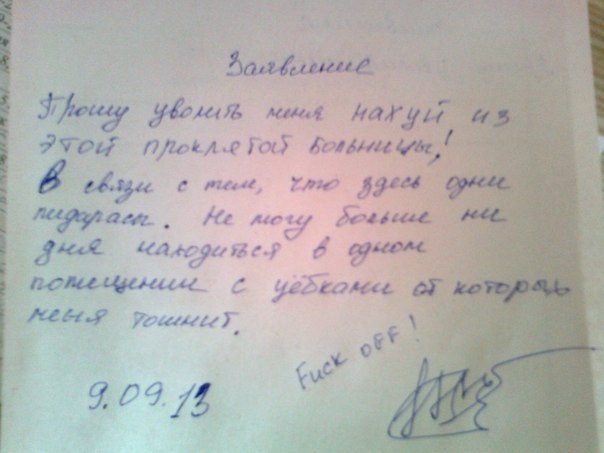 Заявление
Прошу уволить меня НАХУЙ из
этой проклятой больницы!
В связи с тем, что здесь одни
пидарасы. Не могу больше ни
дня находиться в одном
помещении с уёбками от которых
меня тошнит.
Fuck OFF!
9.09.13